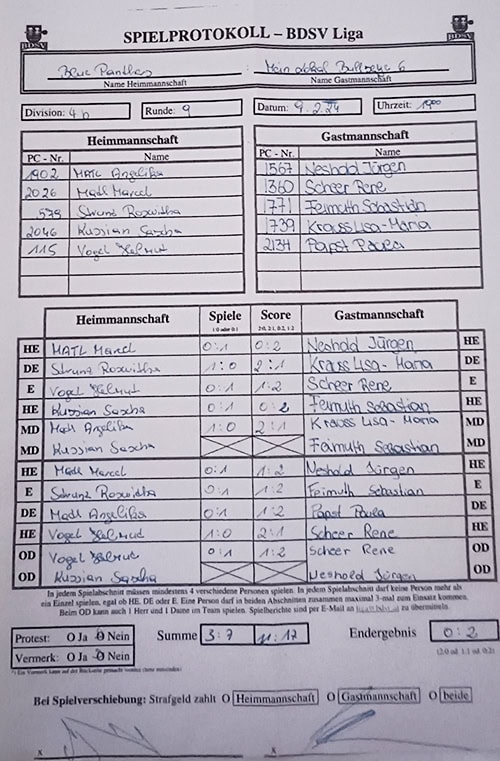 BDSV SPIELPROTOKOLL – BDSV Liga BDSV
Blue Panthers : Mein Lokal Bullseye 6
Name Heimmannschaft Name Gastmannschaft
Division: 4 b Runde: 9 Datum: 9.2.24 Uhrzeit: 19⁰⁰
Heimmannschaft Gastmannschaft
PC - Nr. Name PC - Nr. Name
1902 MATL Angelika 1567 Neshold Jürgen
2026 Matl Marcel 1360 Scheer Rene
579 Strunz Roswitha 1771 Feimuth Sebastian
2046 Russian Sascha 1739 Krauss Lisa-Maria
115 Vogel Helmut 2134 Papst Paula
Heimmannschaft Spiele Score Gastmannschaft
1:0 oder 0:1 2:0, 2:1, 0:2, 1:2
HE MATL Marcel 0:1 0:2 Neshold Jürgen HE
DE Strunz Roswitha 1:0 2:1 Krauss Lisa-Maria DE
E Vogel Helmut 0:1 1:2 Scheer Rene E
HE Russian Sascha 0:1 0:2 Feimuth Sebastian HE
MD Matl Angelika 1:0 2:1 Krauss Lisa-Maria MD
MD Russian Sascha Feimuth Sebastian MD
HE Matl Marcel 0:1 1:2 Neshold Jürgen HE
E Strunz Roswitha 0:1 1:2 Feimuth Sebastian E
DE Matl Angelika 0:1 1:2 Papst Paula DE
HE Vogel Helmut 1:0 2:1 Scheer Rene HE
OD Vogel Helmut 0:1 1:2 Scheer Rene OD
OD Russian Sascha Neshold Jürgen OD
In jedem Spielabschnitt müssen mindestens 4 verschiedene Personen spielen. In jedem Spielabschnitt darf keine Person mehr als
ein Einzel spielen, egal ob HE, DE oder E. Eine Person darf in beiden Abschnitten zusammen maximal 3-mal zum Einsatz kommen.
Beim OD kann auch 1 Herr und 1 Dame im Team spielen. Spielberichte sind per E-Mail an zu übermitteln.
Protest: O Ja O Nein Summe 3:7 11:17 Endergebnis 0:2
Vermerk: O Ja O Nein (2:0 od. 1:1 od. 0:2)
*) Ein Vermerk kann auf der Rückseite gemacht werden (bitte umwenden)
Bei Spielverschiebung: Strafgeld zahlt O Heimmannschaft O Gastmannschaft O beide
x x